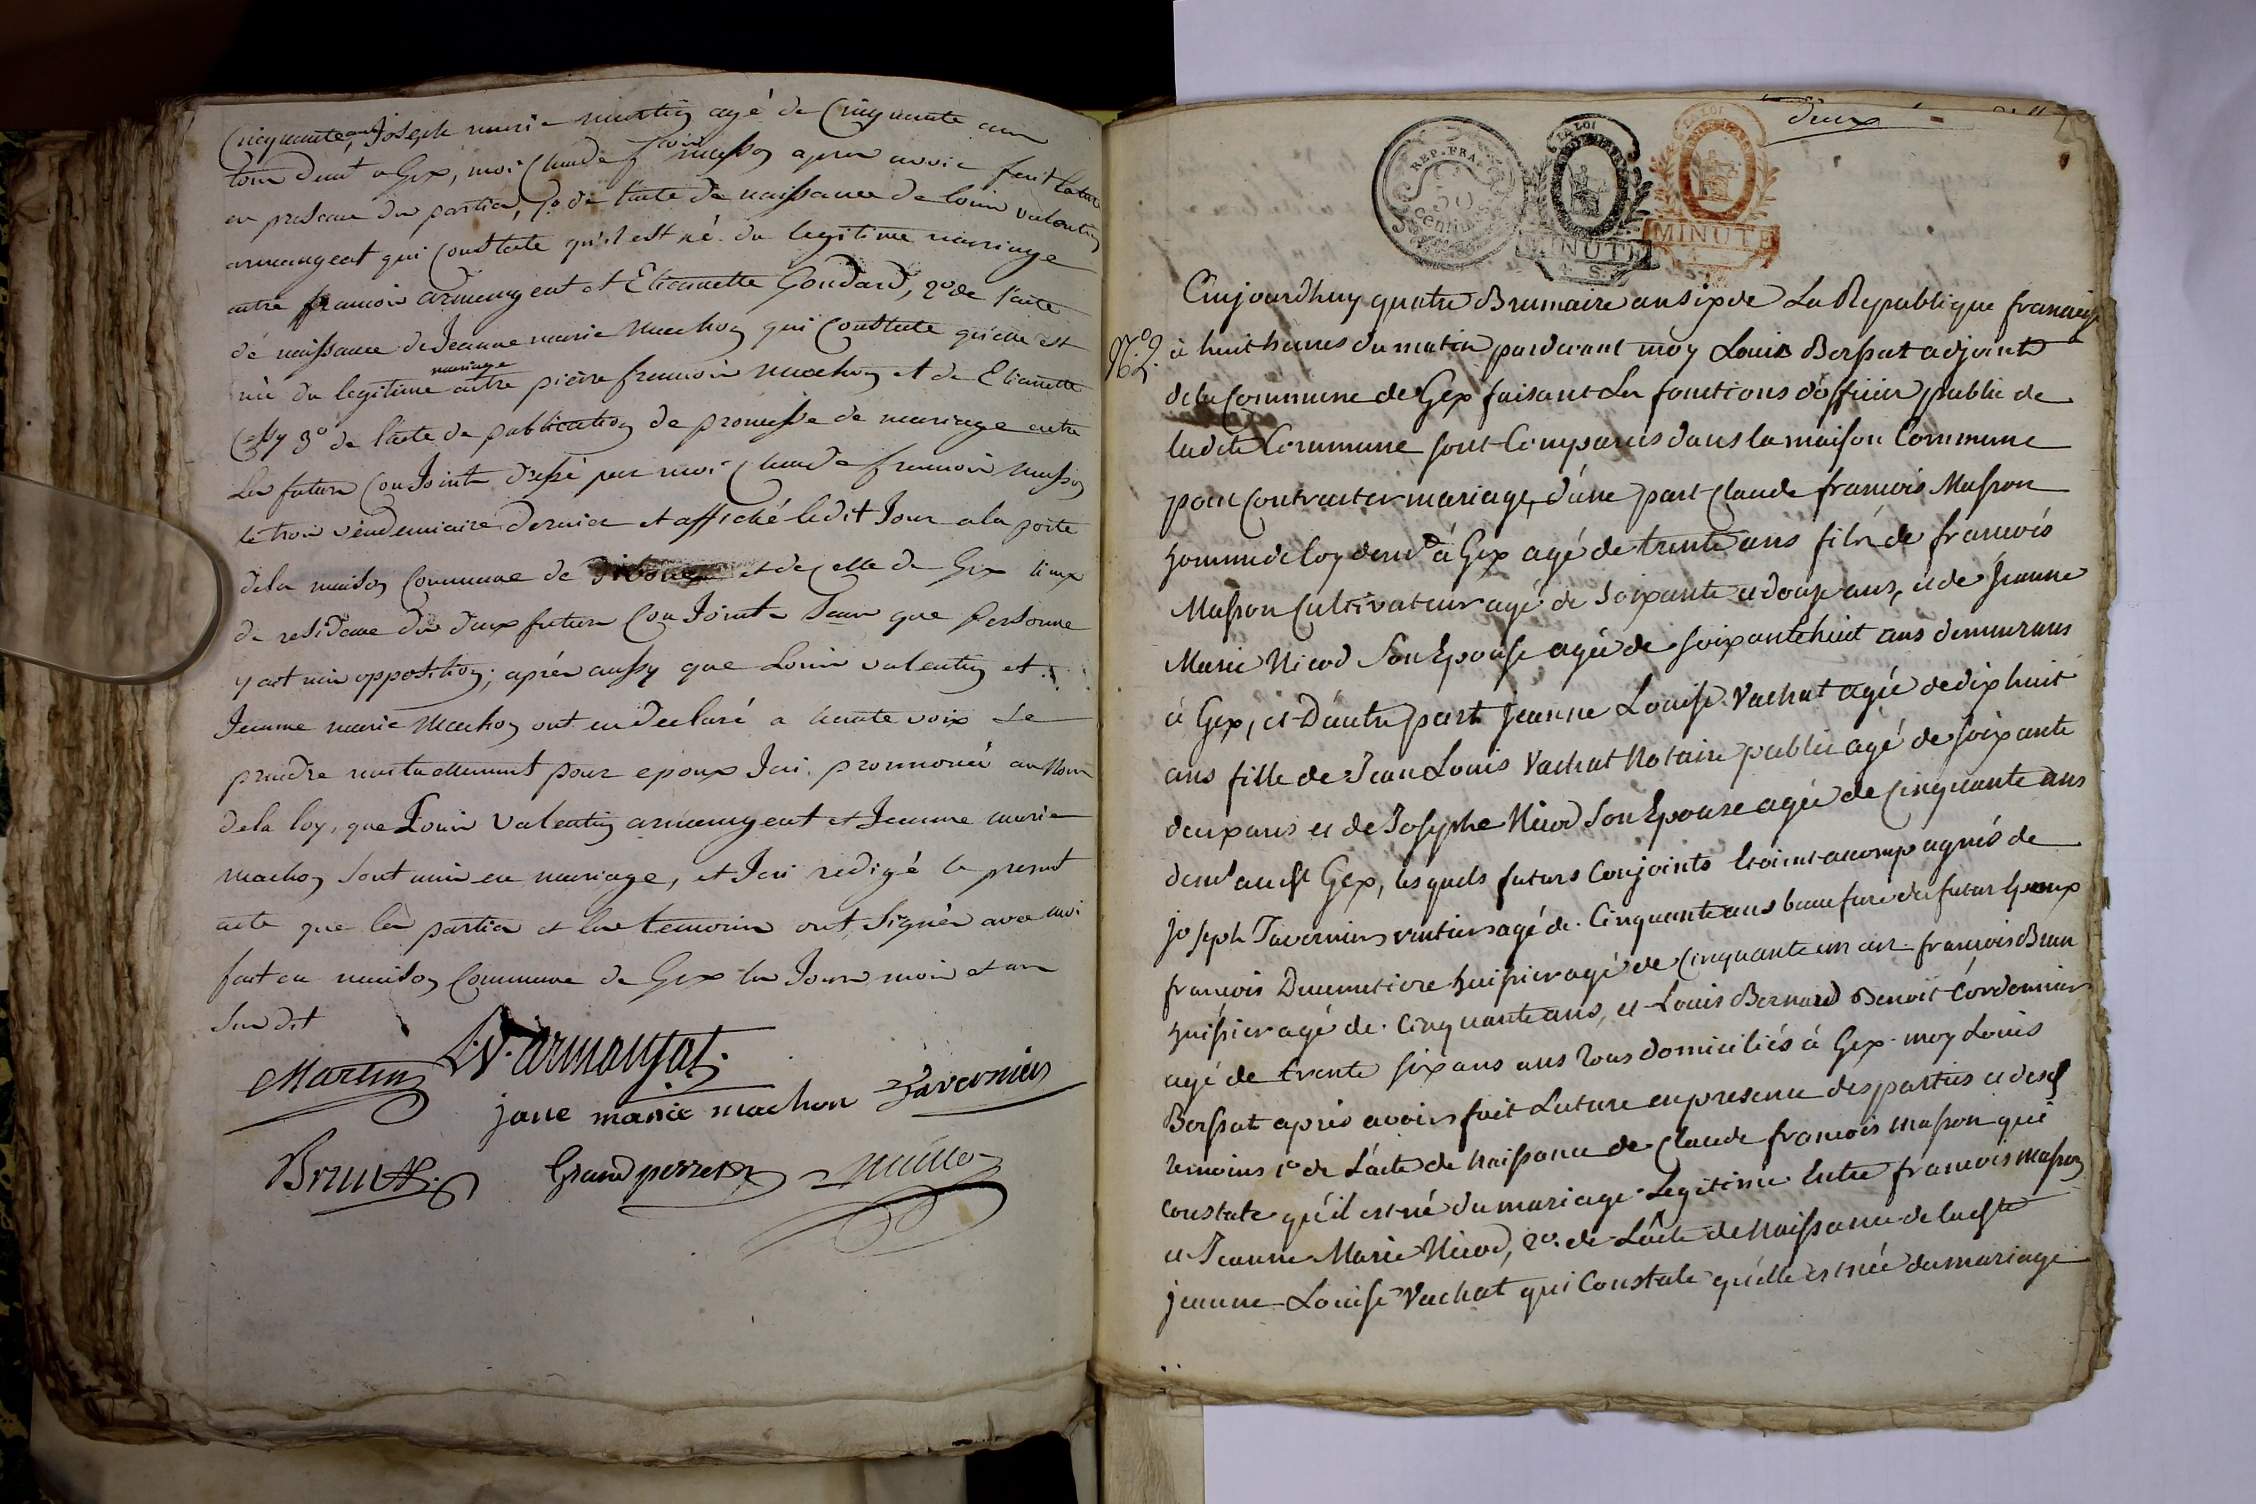 Cinquante ans, Joseph marie martin agé de Cinquante ans
tous demt a Gex, moi Claude fcois masson apres avoir fait lecture
en presence des parties, 1º de l'acte de naissance de louis valentin
armangeat qui Constate qu'il est né du legitime mariage
entre francois armangeat et Etiennette Goudard, 2º de l'acte
de naissance de Jeanne marie machon qui Constate qu'elle est
née du legitime mariage entre pierre francois machon et de Etiennette
3º de l'acte de publication de promesse de mariage entre
les futurs ConJoints dressé par moi Claude francois masson
le trois vendemiaire dernier et affiché ledit Jour a la porte
dela maison Commune de et de celle de Gex lieux
de residence des deux futurs ConJoints sans que personne
y ait mis opposition; après aussy que Louis valentin et
Jeanne marie Machon ont eu declaré a haute voix se
prendre mutuellement pour epoux Jai prononcé au Nom
dela loy, que Louis Valentin armangeat et Jeanne marie
machon sont unis en mariage, et Jai redigé le present
acte que les parties et les temoins ont signés avec moi
fait en maison Commune de Gex les Jour mois et an
susdit
Martin L.V. armanjat.
jane marie machon Tavernier
Brun Grandperret
deux
REP. FRA.
50
centimes
LA LOI
MINUTE
LA LOI
MINUTE
Nº 2.
Cinjourdhuy quatre Brumaire an six de La Republique francaise
à huit heures du matin pardevant moy Louis Borssat adjoint
dela Commune de Gex faisant les fonctions d'officier public de
ladite Commune sont Comparus dans la maison Commune
pour Contracter mariage, d'une part Claude francois Masson
homme de loy demt à Gex agé de trente ans fils de francois
Masson Cultivateur agé de soixante et douze ans, et de Jeanne
Marie Nicod son Epouse agée de soixante huit ans demeurans
à Gex, et D'autre part Jeanne Louise Vachat agée de dix huit
ans fille de Jean Louis Vachat Notaire public agé de soixante
deux ans et de Josephe Nicod son Epouse agée de cinquante ans
demt audt Gex, lesquels futurs Conjoints Etoient acompagnés de
Joseph Tavernier rentier agé de Cinquante ans beau frere du futur Epoux
francois Dumetiere huissier agé de Cinquante un ans francois Brun
huissier agé de Cinquante ans, et Louis Bernard Benoit Cordonnier
agé de trente six ans ans Tous domiciliés à Gex moy Louis
Borssat après avoir fait Lecture en presence des parties et des
temoins 1º de L'acte de Naissance de Claude francois Masson qui
Constate qu'il est né du mariage Legitime Entre francois Masson
et Jeanne Marie Nicod, 2º de L'acte de Naissance de ladte
Jeanne Louise Vachat qui Constate qu'elle est née du mariage